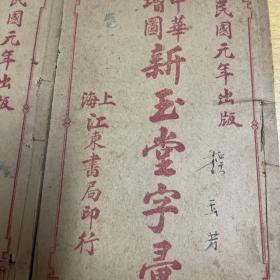 民國元年出版
玉芳
中華
增圖
新玉堂字彙
上海
江東書局印行
民國元年出版